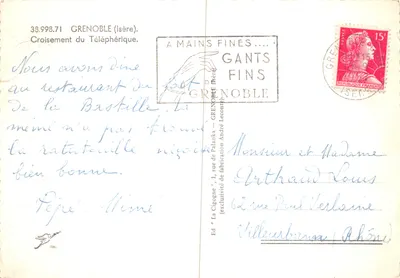 38.998.71 GRENOBLE (Isère).
Croisement du Téléphérique.
A MAINS FINES....
GANTS
FINS
GRENOBLE
15F
Nous avons dîné
au restaurant du fort
De la Bastille. la
mémé n'a pas trouvé
la ratatouille niçoise
bien bonne.
Pépé Mémé
Ed. "La Cigogne", 1, rue de Palanka - GRENOBLE (Isère)
(exclusivité de fabrication André Leconte)
Monsieur et Madame
Arthaud Louis
62 rue Paul Verlaine
Villeurbanne Rhône